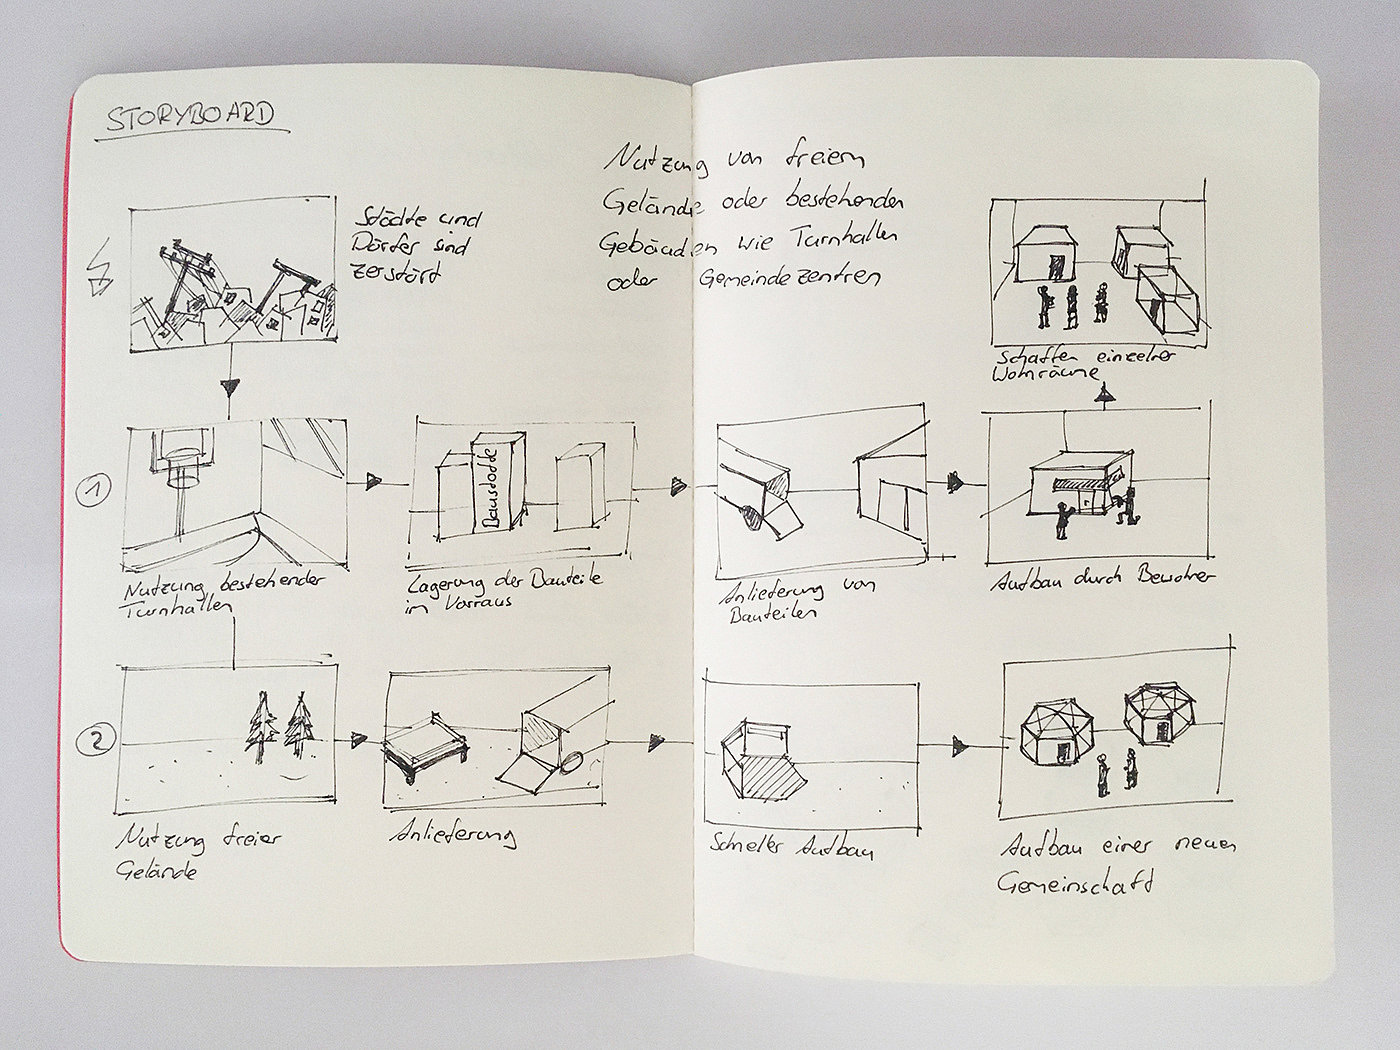 STORYBOARD
Städte und
Dörfer sind
zerstört
Nutzung von freiem
Gelände oder bestehenden
Gebäuden wie Turnhallen
oder Gemeindezentren
Schaffen einzelner
Wohnräume
1
Baustoffe
Nutzung bestehender
Turnhallen
Lagerung der Bauteile
im Vorraus
Anlieferung von
Bauteilen
Aufbau durch Bewohner
2
Nutzung freier
Gelände
Anlieferung
Schneller Aufbau
Aufbau einer neuen
Gemeinschaft